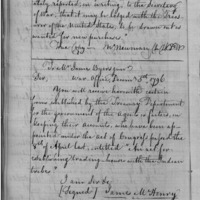 duly reported, in writing, to the Secretary
of War, that it may be lodged with the Trea-
surer of the United States, to be drawn as
wanted for new purchases."
True Copy — Wm Newman
To Mr James Byers
Sir, War Office, 1796
You will annex herewith certain
forms established by the Treasury Department
for the government of the Agents or factors, in
keeping their Accounts, who have been ap-
pointed under the act of Congress passed the
of April last, entitled "An Act for
establishing trading houses with the Indian
tribes."
I am Sir &c
(Signed) James McHenry